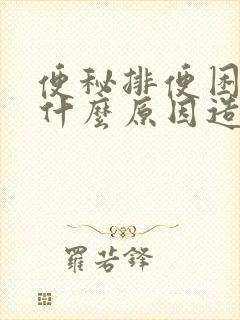 便秘排便困
什麼原因造
羅若鋒